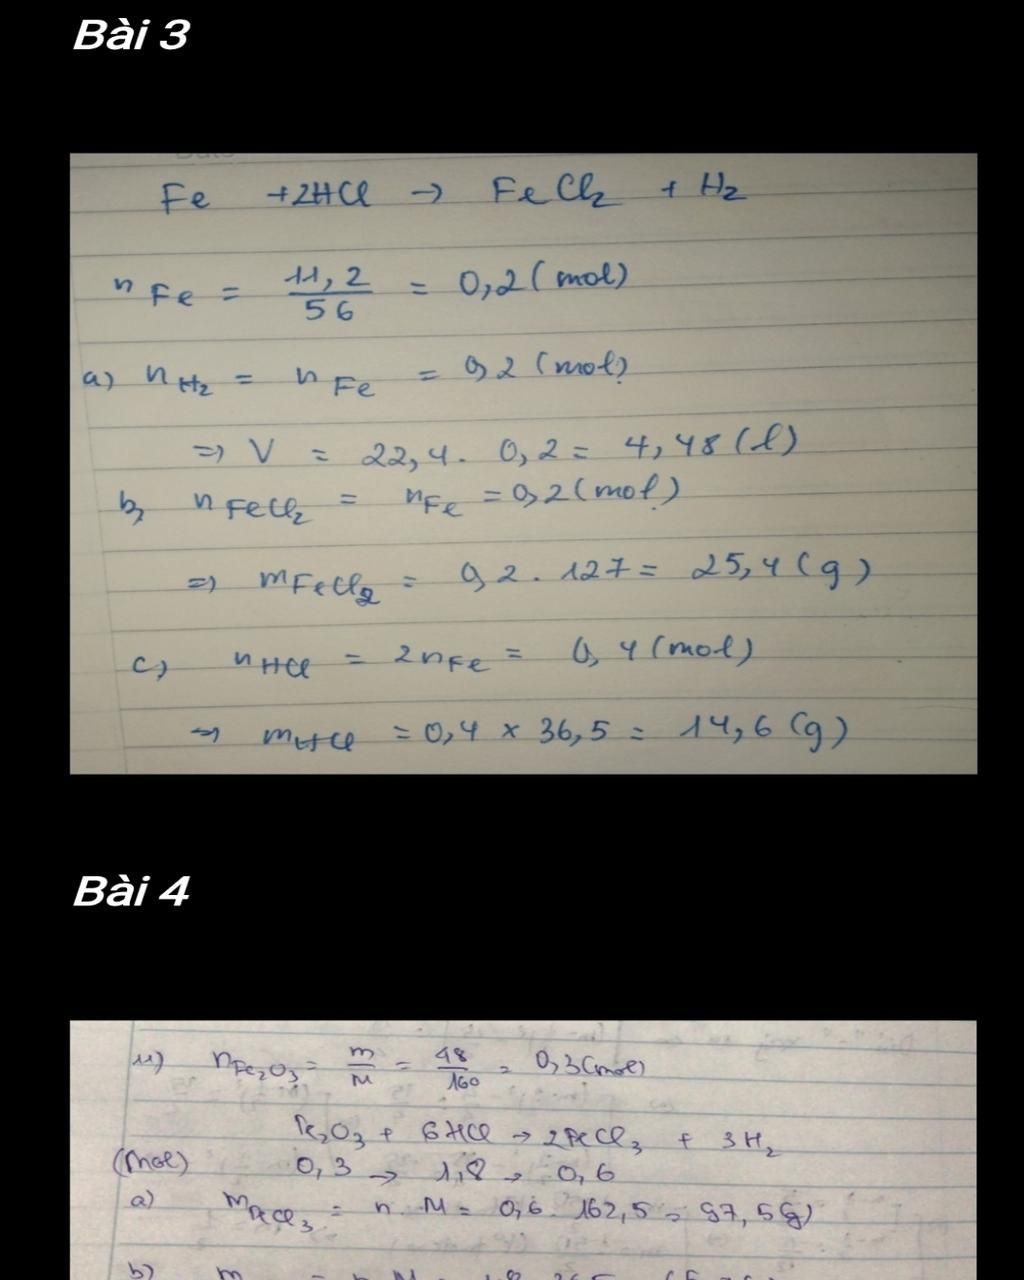 Bài 3
Fe + 2HCl → FeCl₂ + H₂
n Fe = 11,2 / 56 = 0,2 (mol)
a) n H₂ = n Fe = 0,2 (mol)
=> V = 22,4 . 0,2 = 4,48 (l)
b, n FeCl₂ = n Fe = 0,2 (mol)
=> m FeCl₂ = 0,2 . 127 = 25,4 (g)
c) n HCl = 2n Fe = 0,4 (mol)
=> m HCl = 0,4 × 36,5 = 14,6 (g)
Bài 4
11) n Fe₂O₃ = m / M = 48 / 160 = 0,3 (mol)
Fe₂O₃ + 6HCl → 2FeCl₃ + 3H₂
(mol) 0,3 → 1,8 → 0,6
a) m FeCl₃ = n . M = 0,6 . 162,5 = 97,5 (g)
b) m